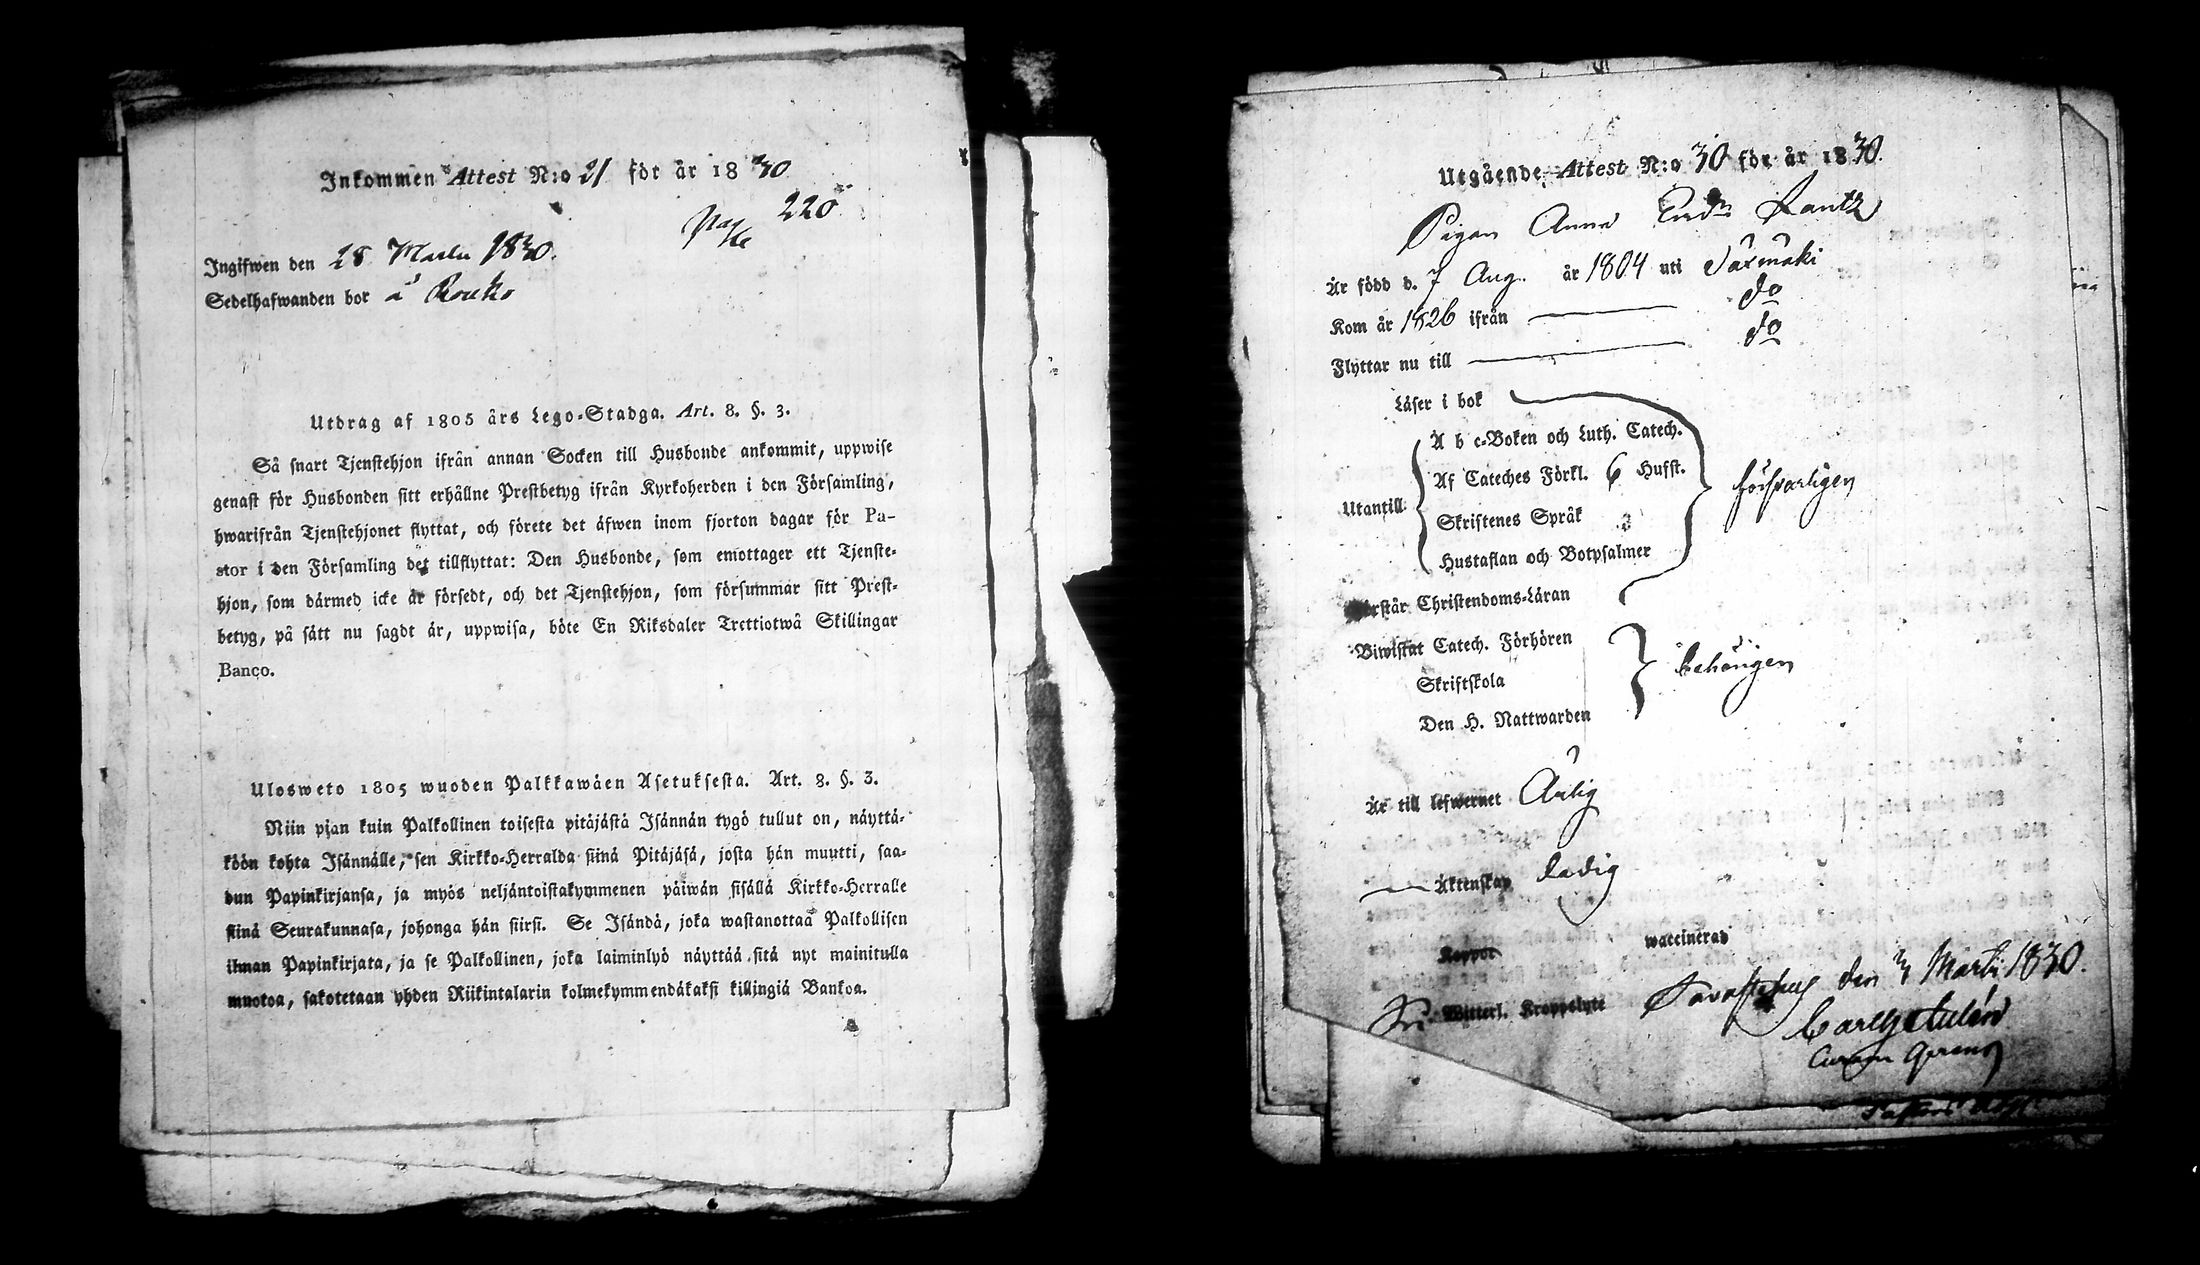 Inkommen Attest N:o 21 för år 1830
Pag 220
Ingifwen den 28 Martii 1830.
Sedelhafwanden bor å Rouko
Utdrag af 1805 års Lego-Stadga. Art. 8. §. 3.
Så snart Tjenstehjon ifrån annan Socken till Husbonde ankommit, uppwise
genast för Husbonden sitt erhållne Prestbetyg ifrån Kyrkoherden i den Församling,
hwarifrån Tjenstehjonet flyttat, och förete det äfwen inom fjorton dagar för Pa-
stor i den Församling det tillflyttat: Den Husbonde, som emottager ett Tjenste-
hjon, som därmed icke är försedt, och det Tjenstehjon, som försummar sitt Prest-
betyg, på sätt nu sagdt är, uppwisa, böte En Riksdaler Trettiotwå Skillingar
Banco.
Ulosweto 1805 wuoden Palkkawäen Asetuksesta. Art. 8. §. 3.
Niin pjan kuin Palkollinen toisesta pitäjästä Isännän tygö tullut on, näyttä-
köön kohta Isännälle, sen Kirkko-Herralda siinä Pitäjäsä, josta hän muutti, saa-
dun Papinkirjansa, ja myös neljäntoistakymmenen päiwän sisällä Kirkko-Herralle
siinä Seurakunnasa, johonga hän siirsi. Se Isändä, joka wastanottaa Palkollisen
ilman Papinkirjata, ja se Palkollinen, joka laiminlyö näyttää sitä nyt mainitulla
muotoa, sakotetaan yhden Riikintalarin kolmekymmendäkaksi killingiä Bankoa.
Utgående Attest N:o 30 för år 1830.
Pigan Anna Lantz
Är född d. 7 Aug. år 1804 uti Säxmäki
Kom år 1826 ifrån — do
Flyttar nu till — do
Läser i bok
Utantill
A b c-Boken och Luth. Catech.
Af Cateches Förkl. 6 Hufst.
Skriftenes Språk
Hustaflan och Botpsalmer
försvarligen
Förstår Christendoms-Läran
Biwistat Catech. Förhören
Skriftskola
Den H. Nattwarden
behörigen
Är till lefwernet Ärlig
— Äktenskap ledig
Koppor waccinerad
Fri. Witterl. Kroppslyte Tavastehus den Martii 1830.
Curam Gerens